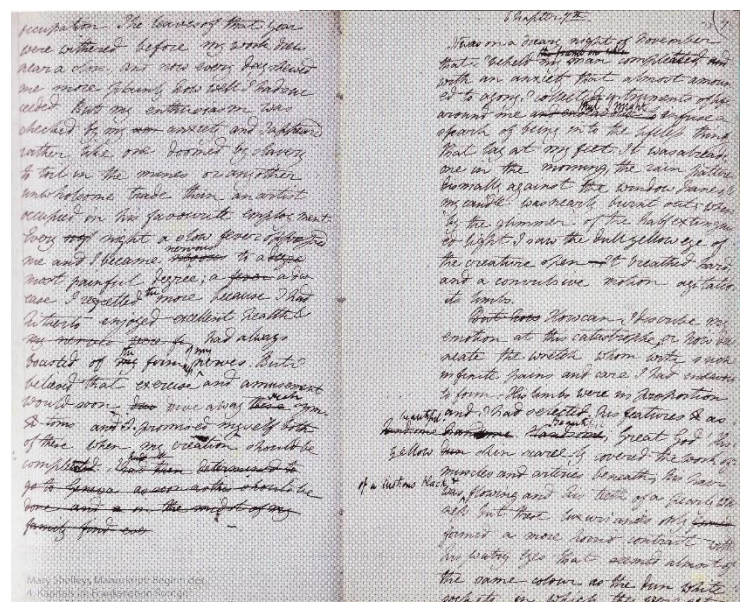 occupation. The leaves of that year
were withered before my work drew
near a close, and now every day shewed
me more plainly how well I had suc
ceeded. But my enthusiasm was
checked by my anxiety and I appeared
rather like one doomed by slavery
to toil in the mines or any other
unwholsome trade than an artist
occupied on his favourite employment.
Every night a slow fever oppressed
me and I became nervous to a
most painful degree; a fever a dis
ease I regretted the more because I had
hitherto enjoyed excellent health &
had always
boasted of the firmness of my nerves. But I
believed that exercise and amusement
would soon drive away such symp
toms and I promised myself both
of these when my creation should be
completed. I had then determined to
go to Geneva as soon as this should be
done and in the midst of my
family
Chapter 7th
It was on a dreary night of November
that I beheld my man compleated and
with an anxiety that almost amoun
ed to agony, I collected instruments of life
around me that I might infuse a
spark of being into the lifeless thing
that lay at my feet. It was already
one in the morning, the rain pattered
dismally against the window panes, &
my candle was nearly burnt out, when
by the glimmer of the half extinguish
ed light I saw the dull yellow eye of
the creature open. It breathed hard,
and a convulsive motion agitated
its limbs.
But how How can I describe my
emotion at this catastrophe, or how de
lineate the wretch whom with such
infinite pains and care I had endeavoured
to form. His limbs were in proportion
and I had selected his features as
beautiful handsome Great God! His
yellow dun skin scarcely covered the work of
muscles and arteries beneath; his hair
of a lustrous black &
was flowing and his teeth of a pearly white
ness but these luxuriancies only
formed a more horrid contrast with
his watry eyes that seemed almost of
the same colour as the dun white
sockets in which they were
Mary Shelleys Manuskript: Beginn des
4. Kapitels im Frankenstein Roman